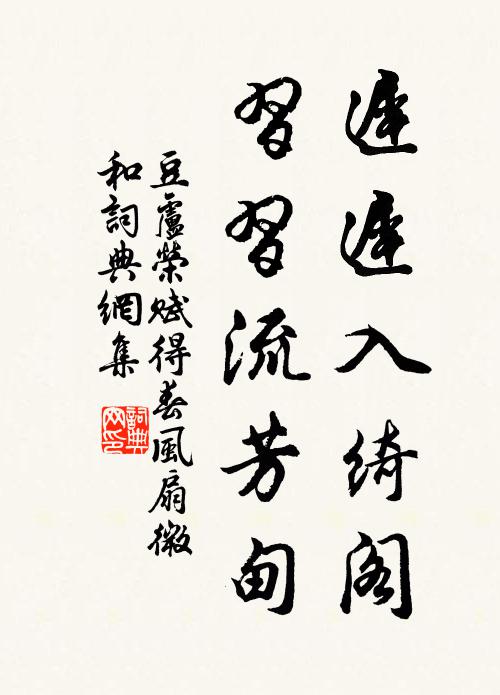 遲遲入綺閣
習習流芳甸
豆盧榮賦得春風扇微
和詞典網集
詞典网印